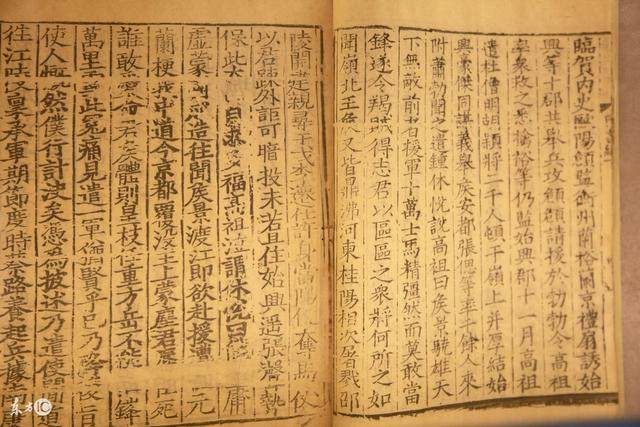 臨賀内史歐陽頠監衡州蘭裕蘭京禮扇誘始
興等十郡共舉兵攻頠頠請援於勃勃令高祖
率衆救之悉擒裕等仍監始興郡十一月高祖
遣杜僧明胡穎將二千人頓于嶺上并厚結始
興豪傑同謀義舉侯安都張偲等率千餘人來
附蕭勃聞之遣鍾休悅說高祖曰侯景驍雄天
下無敵前者援軍十萬士馬精彊然而莫敢當
鋒遂令羯賊得志君以區區之衆將何所之如
聞嶺北王侯又皆鼎沸河東桂陽相次屠戮邵
陵開建親尋干戈李遷仕許身當陽便奪馬仗
以君疎外詎可暗投未若且住始興遙張聲勢
保此太 多福高祖泣謂休悅曰 庸
虛蒙國成造往聞侯景渡江即欲赴援遭 元
蘭梗我中道今京都覆沒主上蒙塵君辱 死
誰敢愛命君侯體則皇枝任重方岳不能 鋒
萬里雪此冤痛見遣一軍猶賢乎已乃降後旨
使人慨然僕行計決矣憑為披述乃遣使間道
往江陵稟承軍期節度時蔡路養起兵據南康
东方IC